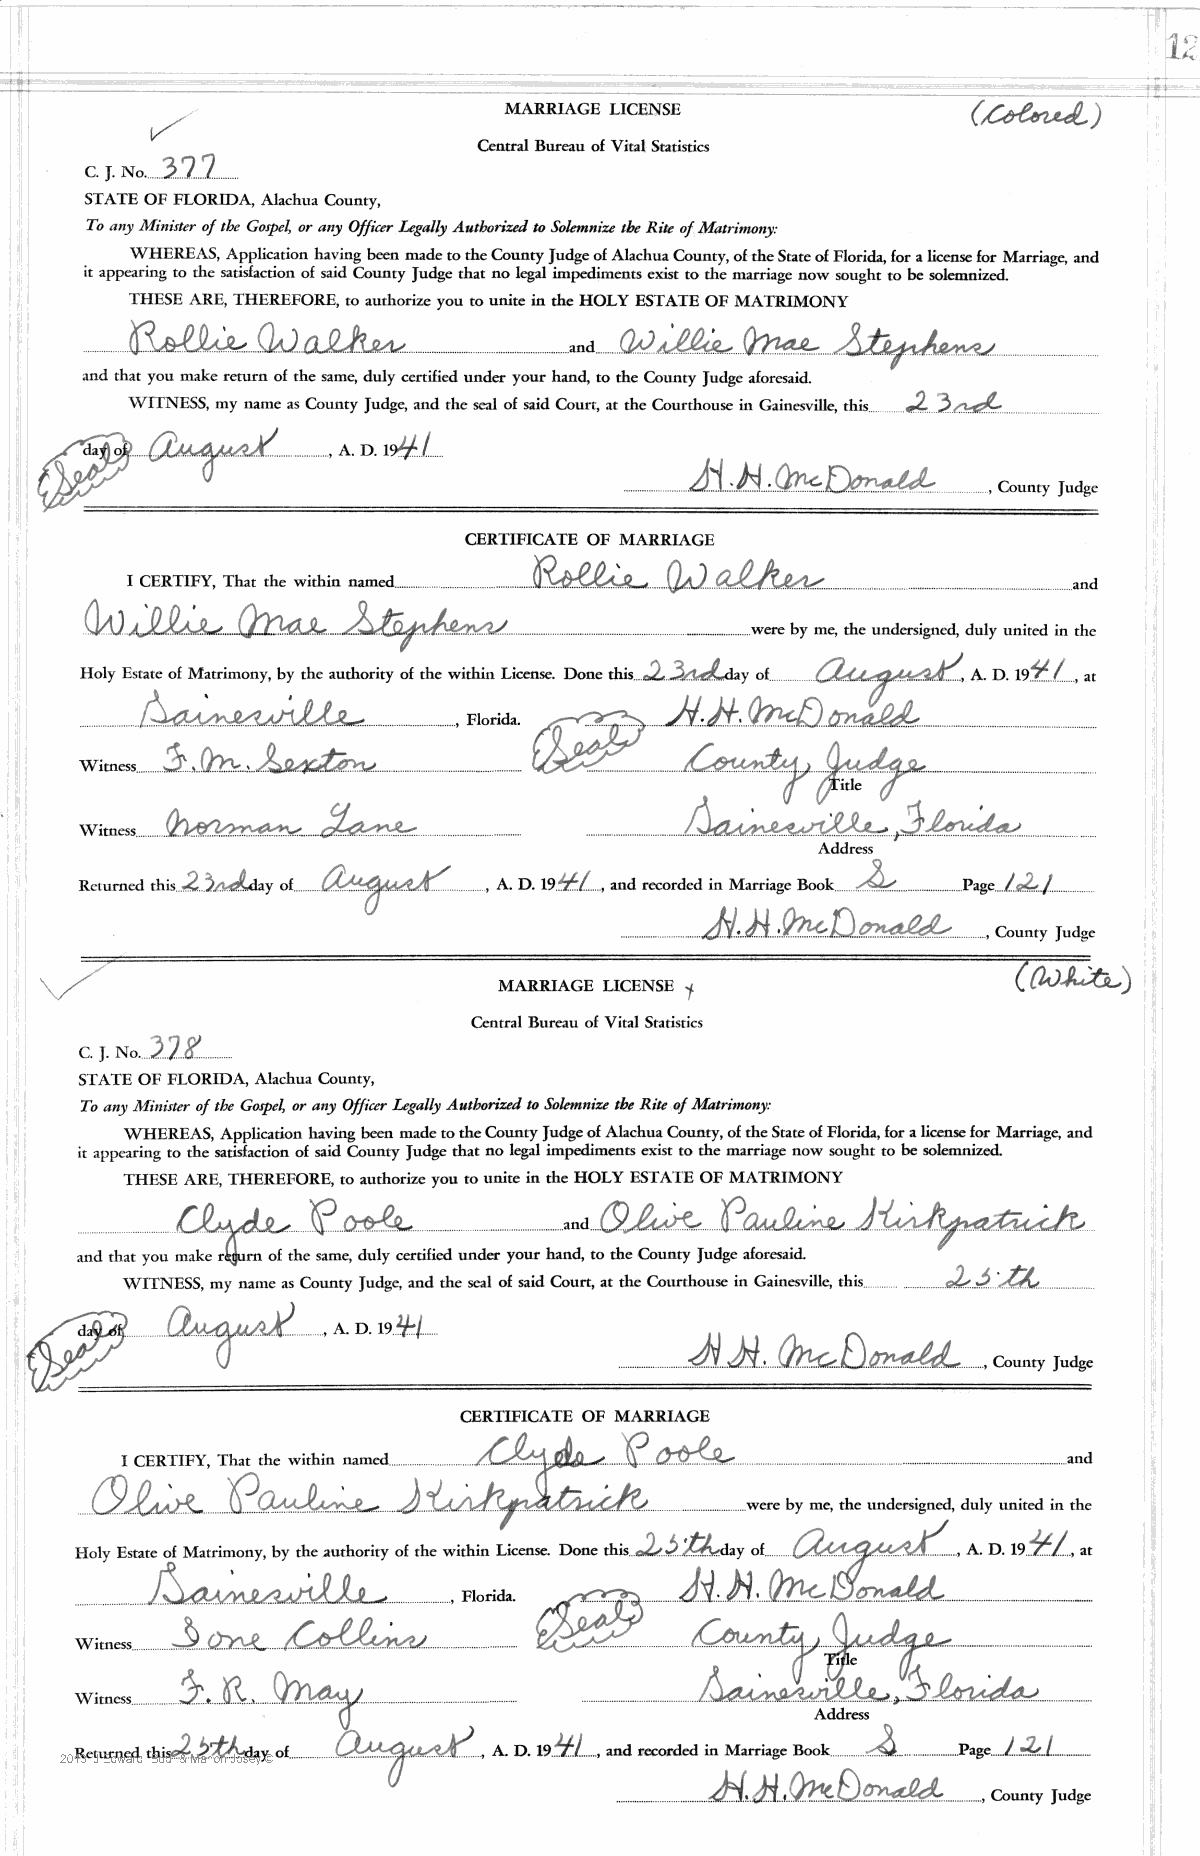 12
MARRIAGE LICENSE (Colored)
Central Bureau of Vital Statistics
C. J. No. 377
STATE OF FLORIDA, Alachua County,
To any Minister of the Gospel, or any Officer Legally Authorized to Solemnize the Rite of Matrimony:
WHEREAS, Application having been made to the County Judge of Alachua County, of the State of Florida, for a license for Marriage, and
it appearing to the satisfaction of said County Judge that no legal impediments exist to the marriage now sought to be solemnized.
THESE ARE, THEREFORE, to authorize you to unite in the HOLY ESTATE OF MATRIMONY
Rollie Walker and Willie Mae Stephens
and that you make return of the same, duly certified under your hand, to the County Judge aforesaid.
WITNESS, my name as County Judge, and the seal of said Court, at the Courthouse in Gainesville, this 23rd
(Seal) day of August, A. D. 1941
H. H. McDonald, County Judge
CERTIFICATE OF MARRIAGE
I CERTIFY, That the within named Rollie Walker and
Willie Mae Stephens were by me, the undersigned, duly united in the
Holy Estate of Matrimony, by the authority of the within License. Done this 23rd day of August, A. D. 1941, at
Gainesville, Florida. H. H. McDonald
Witness F. M. Sexton (Seal) County Judge
Title
Witness Norman Lane Gainesville, Florida
Address
Returned this 23rd day of August, A. D. 1941, and recorded in Marriage Book S Page 121
H. H. McDonald, County Judge
MARRIAGE LICENSE (White)
Central Bureau of Vital Statistics
C. J. No. 378
STATE OF FLORIDA, Alachua County,
To any Minister of the Gospel, or any Officer Legally Authorized to Solemnize the Rite of Matrimony:
WHEREAS, Application having been made to the County Judge of Alachua County, of the State of Florida, for a license for Marriage, and
it appearing to the satisfaction of said County Judge that no legal impediments exist to the marriage now sought to be solemnized.
THESE ARE, THEREFORE, to authorize you to unite in the HOLY ESTATE OF MATRIMONY
Clyde Poole and Olive Pauline Kirkpatrick
and that you make return of the same, duly certified under your hand, to the County Judge aforesaid.
WITNESS, my name as County Judge, and the seal of said Court, at the Courthouse in Gainesville, this 25th
(Seal) day of August, A. D. 1941
H. H. McDonald, County Judge
CERTIFICATE OF MARRIAGE
I CERTIFY, That the within named Clyde Poole and
Olive Pauline Kirkpatrick were by me, the undersigned, duly united in the
Holy Estate of Matrimony, by the authority of the within License. Done this 25th day of August, A. D. 1941, at
Gainesville, Florida. H. H. McDonald
Witness Collins (Seal) County Judge
Title
Witness F. R. May Gainesville, Florida
Address
Returned this 25th day of August, A. D. 1941, and recorded in Marriage Book S Page 121
H. H. McDonald, County Judge